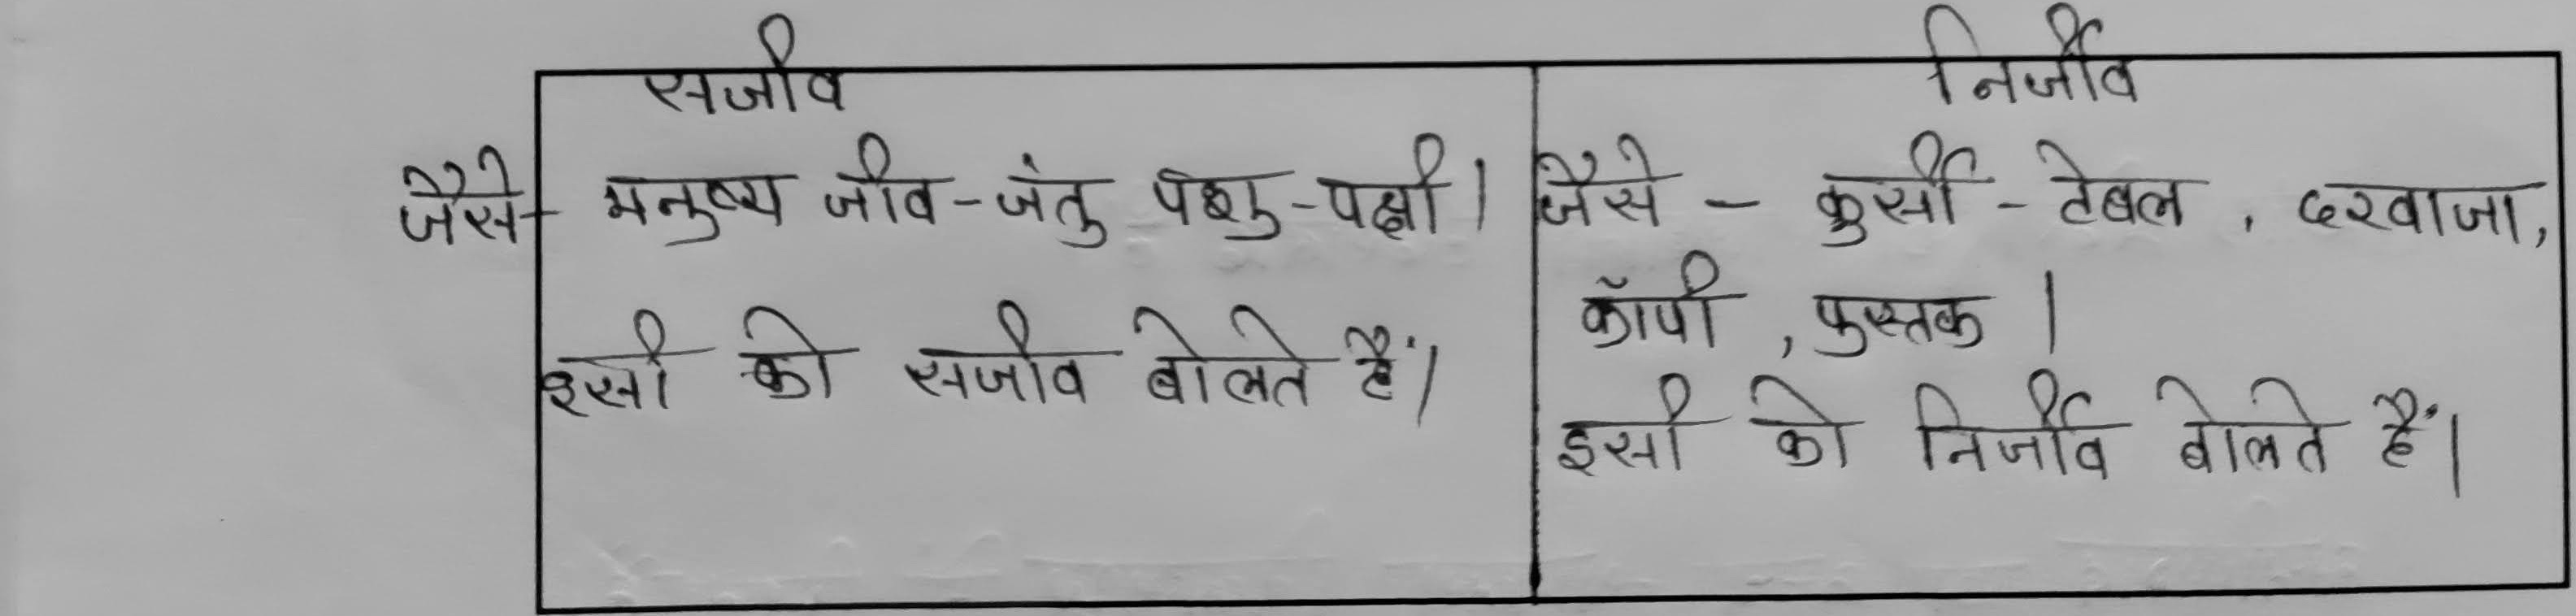 सजीव
जैसे - मनुष्य जीव-जंतु पशु-पक्षी।
इसी को सजीव बोलते हैं।
निर्जीव
जैसे - कुर्सी - टेबल , दरवाजा,
कॉपी , पुस्तक ।
इसी को निर्जीव बोलते हैं।